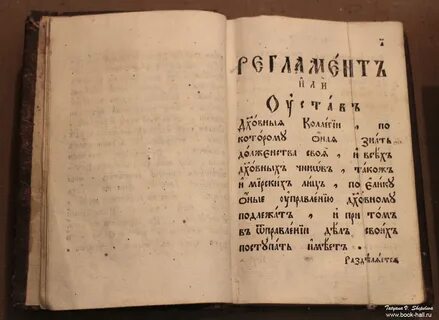 РЕГЛАМЕ́НТЪ
И҆ЛИ
Оу҆СТА́ВЪ
Дх҃о́вныѧ Коллегіи , по
которому ѻ҆наѧ зна́ть
до́лженства своѧ̀ , и҆ всѣ́хъ
дх҃о́вныхъ чинѡ́въ , та́кожъ
и҆ мирски́хъ ли́цъ , по е҆ли́ку
ѻ҆ные оу҆правле́нію дх҃о́вному
подлежа́тъ , и҆ при то́мъ
въ ѿправле́нїи дѣ́лъ свои́хъ
поступа́ть и҆мѣ́етъ .
Раздѣлѧ́етсѧ
Tatyana V. Shepeleva
www.book-hall.ru